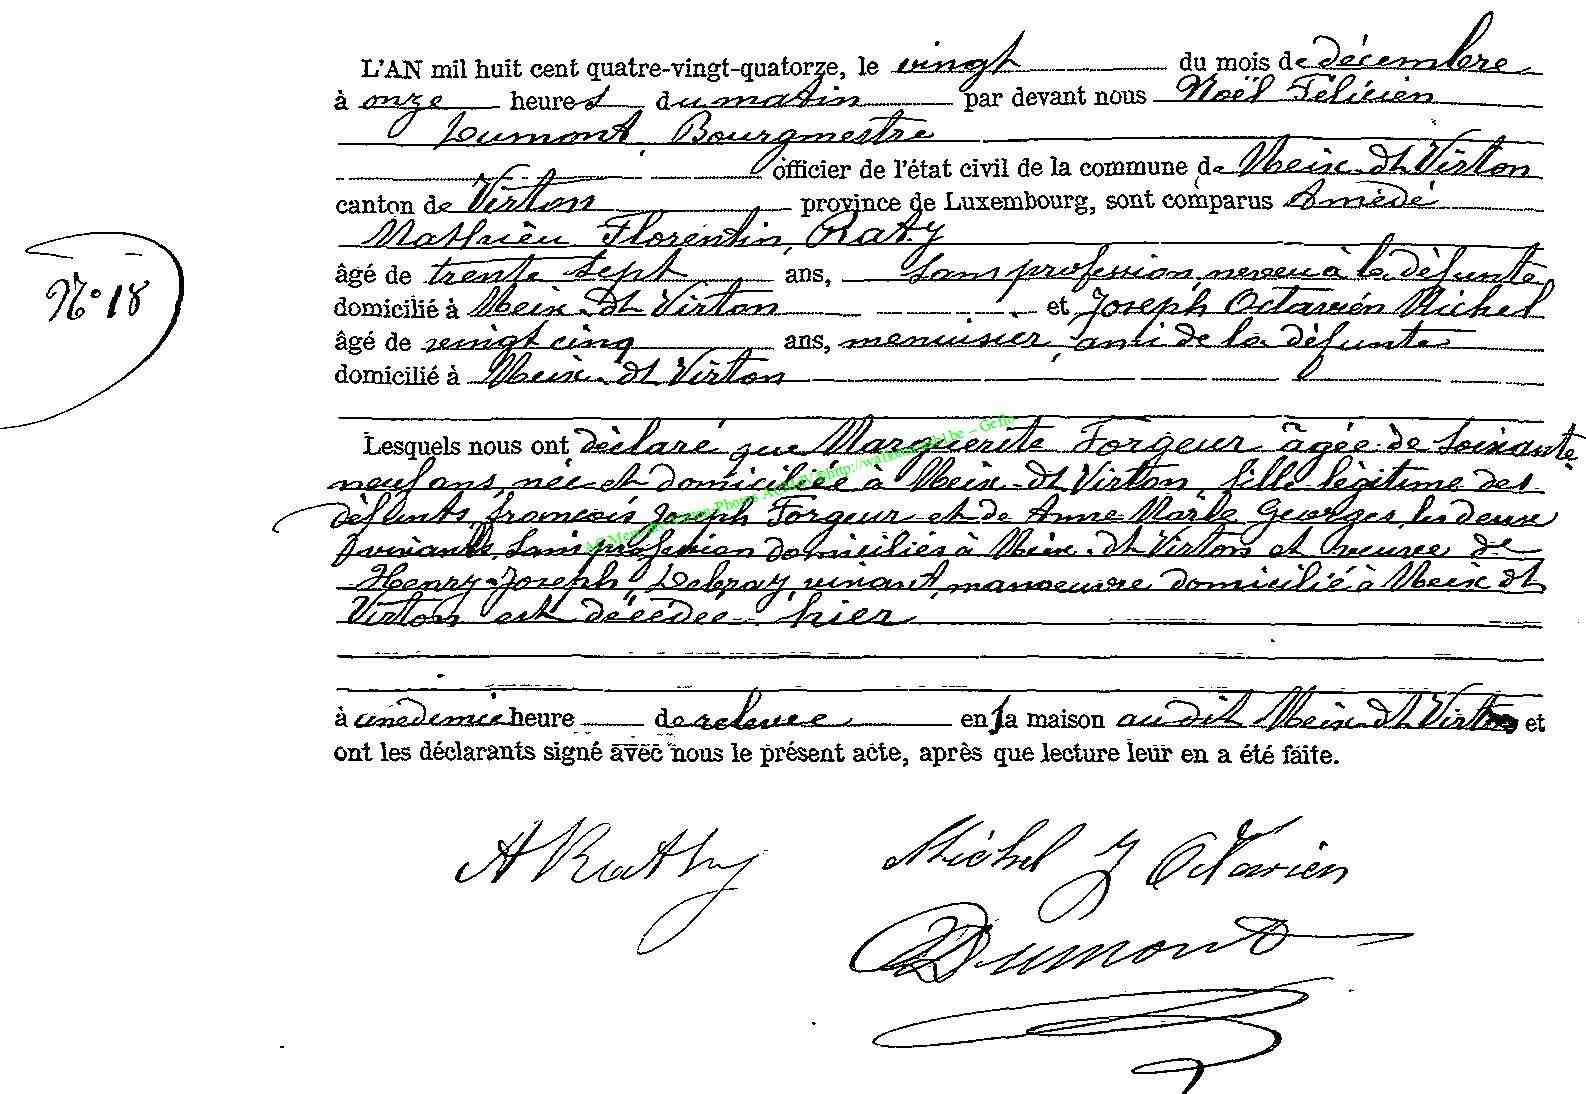 L'AN mil huit cent quatre-vingt-quatorze, le vingt du mois de décembre
à onze heures du matin par devant nous Noël Félicien
Dumont, Bourgmestre
officier de l'état civil de la commune de Meix-dt Virton
canton de Virton province de Luxembourg, sont comparus Amédé
Mathieu Florentin, Raty
N° 18
âgé de trente sept ans, sans profession, neveu à la défunte
domicilié à Meix-dt Virton et Joseph Octavien Michel
âgé de vingt cinq ans, menuisier, ami de la défunte
domicilié à Meix-dt Virton
Lesquels nous ont déclaré que Marguerite Forgeur âgée de soixante
neuf ans, née et domiciliée à Meix-dt Virton, fille légitime des
défunts, françois Joseph Forgeur et de Anne Marie Georges, les deux
vivants, sans profession domiciliés à Meix-dt Virton et veuve de
Henry-Joseph, Debray, vivant, manoeuvre domicilié à Meix dt
Virton est décédée hier
à une demie heure de relevée en la maison au dit Meix-dt Virton et
ont les déclarants signé avec nous le présent acte, après que lecture leur en a été faite.
A Rathy Michel J Octavien
Dumont